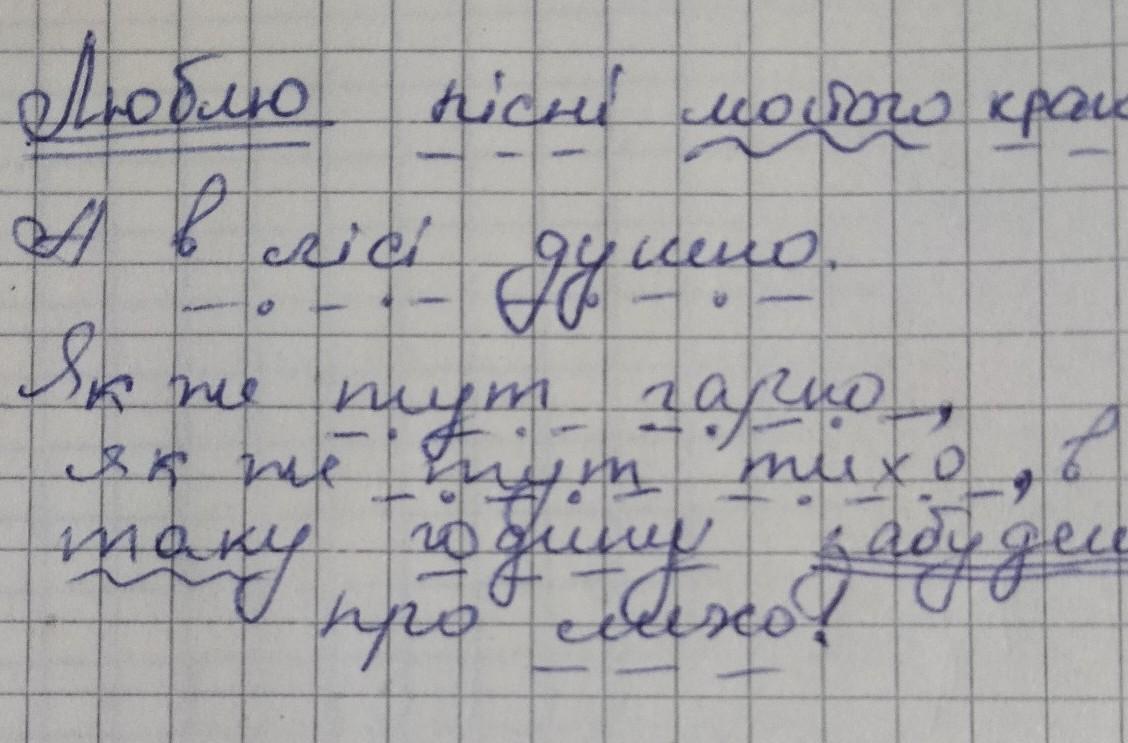 Люблю пісні мойого краю
А в лісі душно.
Як же тут гарно,
як же тут тихо, в
таку годину забудеш
про лихо!